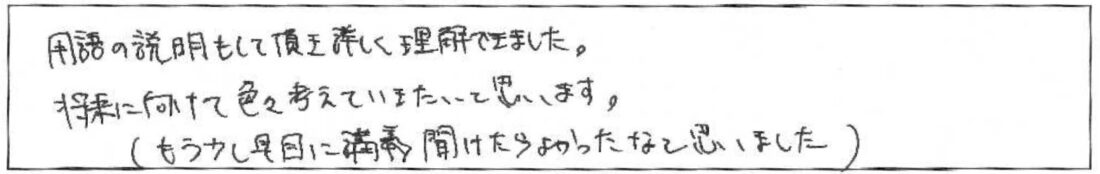 用語の説明もして頂き詳しく理解できました。
将来に向けて色々考えていきたいと思います。
(もう少し早目に講義聞けたらよかったなと思いました)